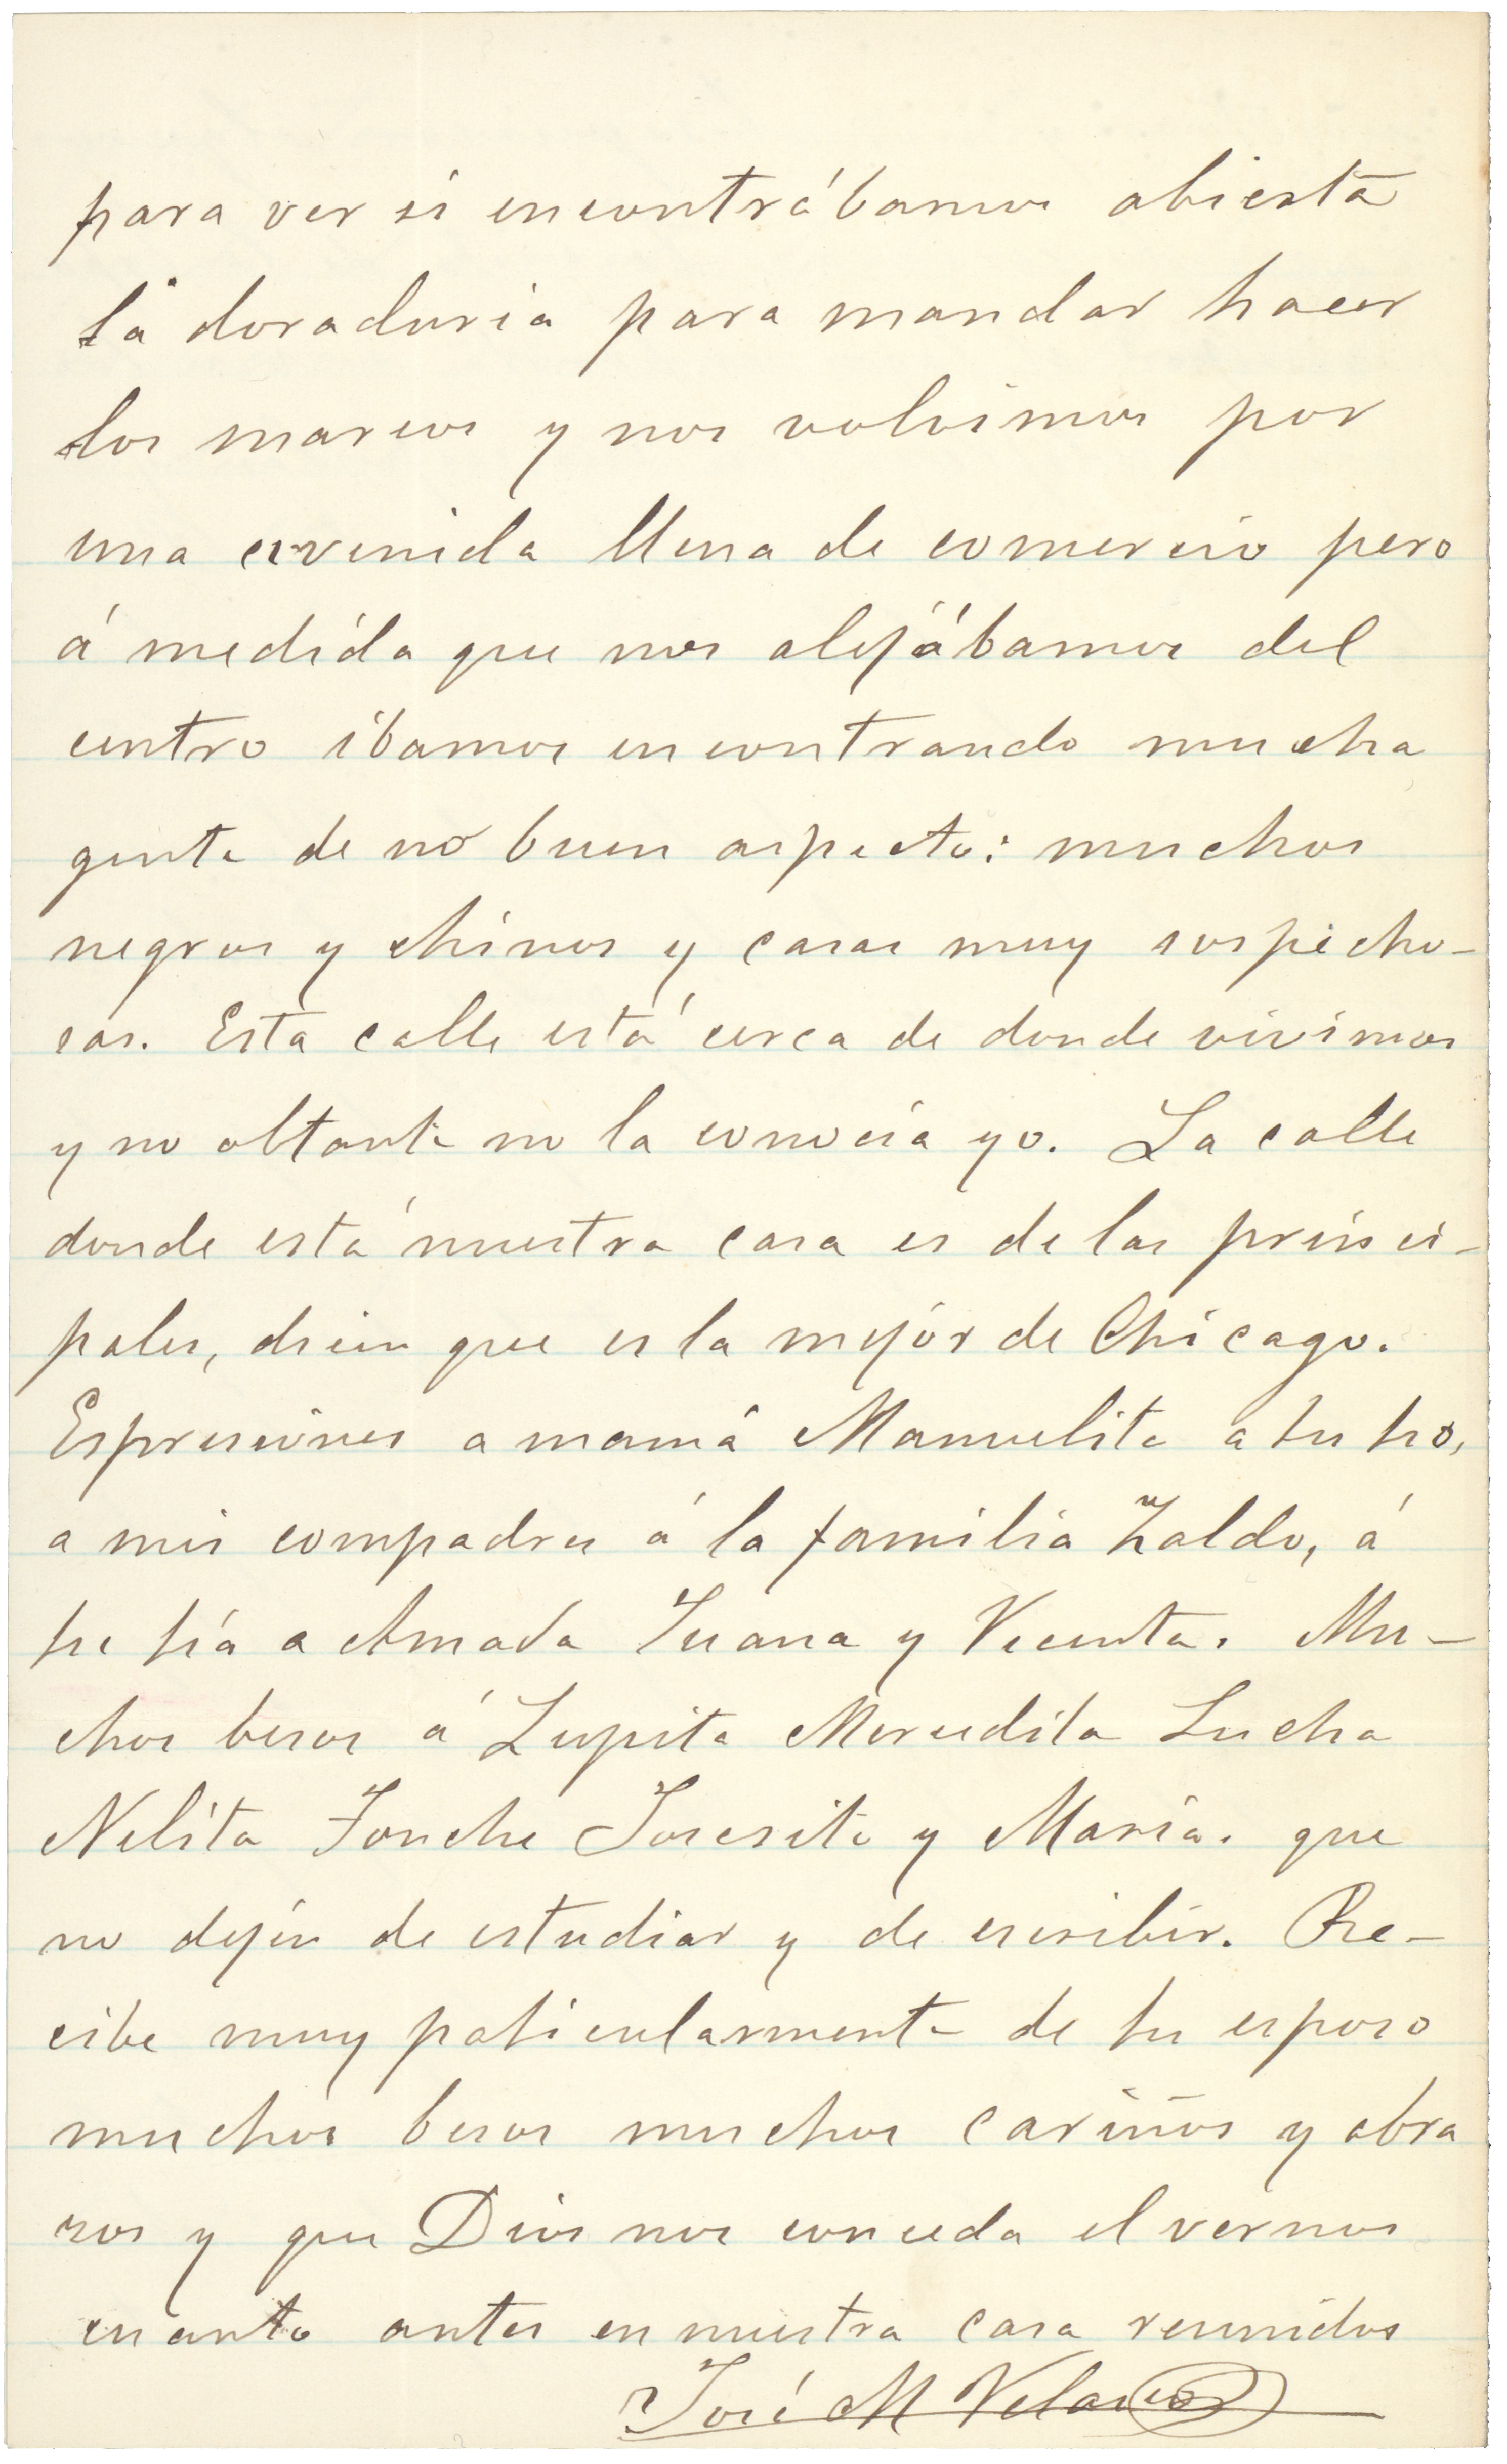 para ver si encontrábamos abierta
la doraduria para mandar hacer
los marcos y nos volvimos por
una avenida llena de comercio pero
á medida que nos alejábamos del
centro ibamos encontrando mucha
gente de no buen aspecto: muchos
negros y chinos y casas muy sospecho-
sas. Esta calle está cerca de donde vivimos
y no obtante no la conocia yo. La calle
donde está nuestra casa es de las princi-
pales, dicen que es la mejor de Chicago.
Espresiones a mamá Manuelita a tu tio,
a mis compadres á la familia Zaldo, á
tu tía a Amada Juana y Vicenta. Mu-
chos besos á Lupita Merceditas Lucha
Nelita Fonche Josesito y Maria. que
no dejen de estudiar y de escribir. Re-
cibe muy paticularmente de tu esposo
muchos besos muchos cariños y abra
zos y que Dios nos conceda el vernos
cuanto antes en nuestra casa reunidos
José M Velasco